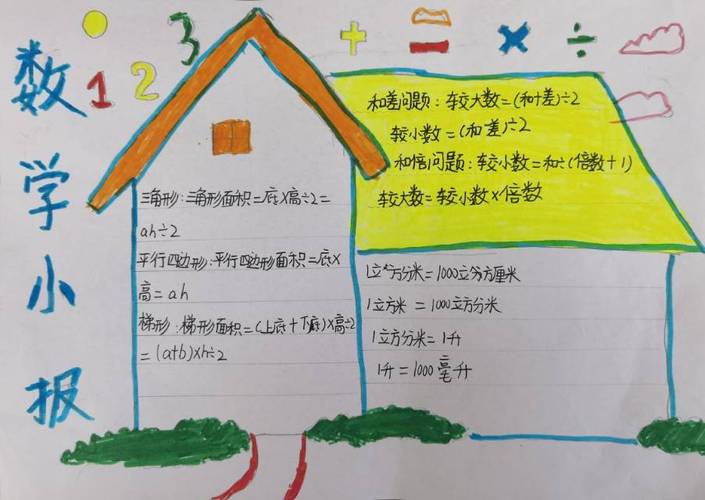 数学小报
1 2 3 + = × ÷
和差问题：较大数=(和+差)÷2
较小数=(和-差)÷2
和倍问题：较小数=和÷(倍数+1)
较大数=较小数×倍数
三角形：三角形面积=底×高÷2=
ah÷2
平行四边形：平行四边形面积=底×
高=ah
梯形：梯形面积=(上底+下底)×高÷2
=(a+b)×h÷2
1立方分米=1000立方厘米
1立方米=1000立方分米
1立方分米=1升
1升=1000毫升